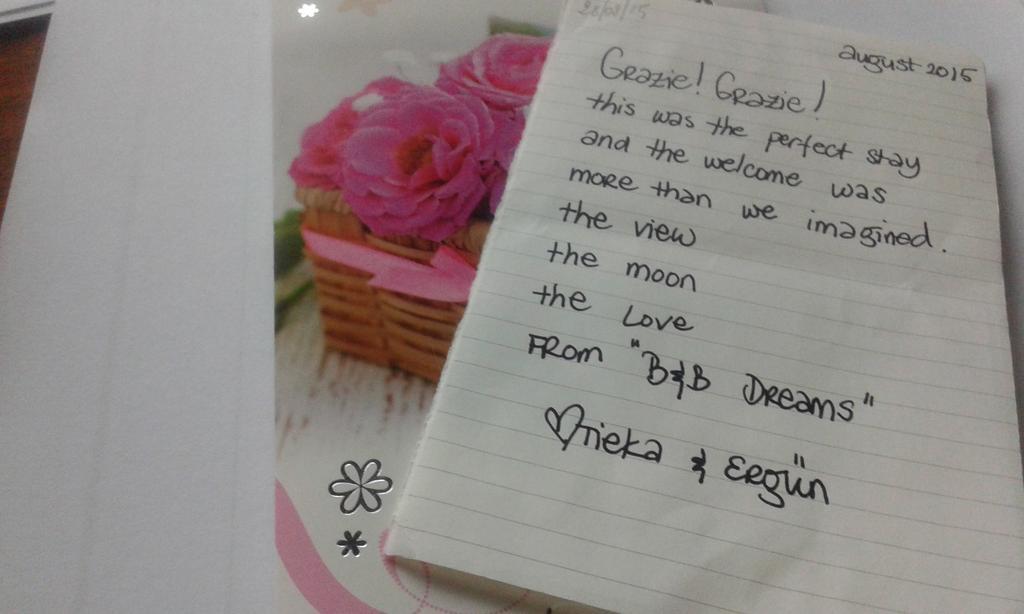 28/08/15
august 2015
Grazie! Grazie!
this was the perfect stay
and the welcome was
more than we imagined.
the view
the moon
the Love
From "B&B Dreams"
♡ Tieka & Ergün